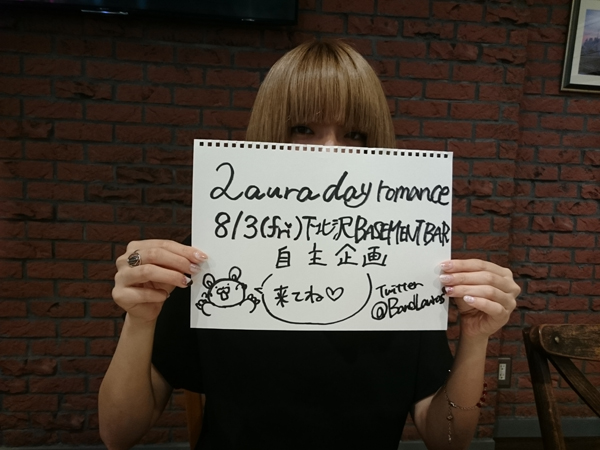 Laura day romance
8/3(fri)下北沢BASEMENT BAR
自主企画
来てね♡
Twitter